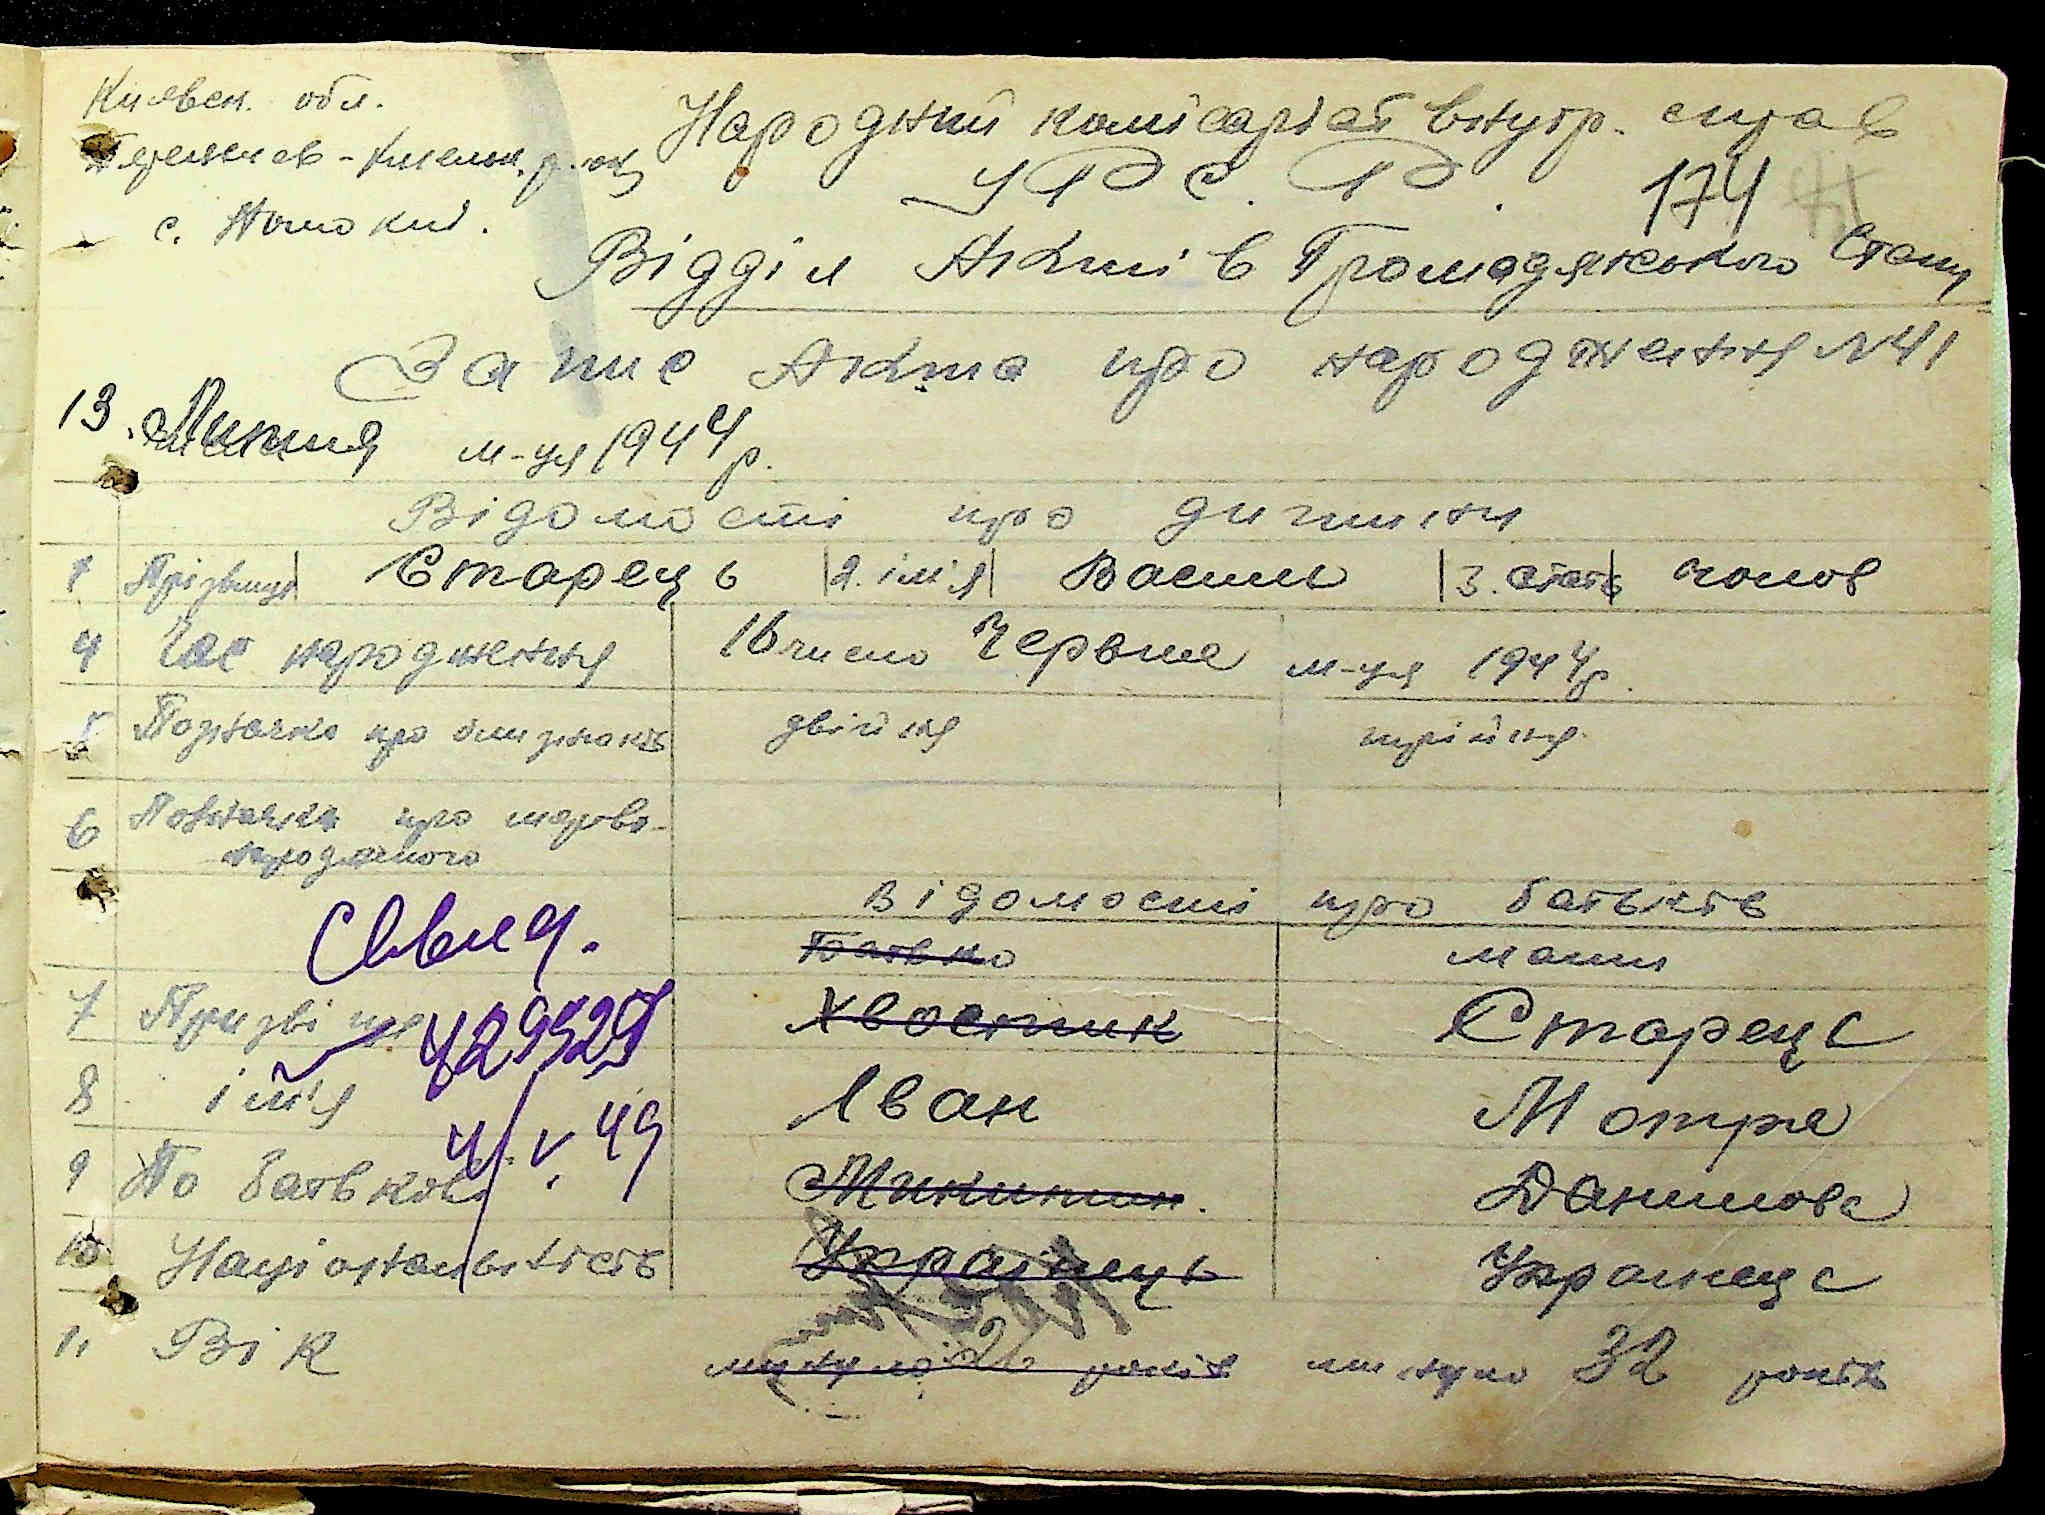 Киявск. обл.
Переяслав-Хмельн. р-ну
с. Помокли.
Народний комісаріат внутр. справ
У Р С. Р.
174
Відділ Актів Громадянського Стану
Запис Акта про народження № 41
13. Липня м-ця 1944 р.
Відомості про дитину
1 Прізвище Старець 2. ім'я Василь 3. стать чолов
4 Час народження 16 число Червня м-ця 1944 р.
5 Позначка про близнюків двійня трійня
6 Позначка про мертво-
народженого
Відомості про батьків
Свид. Батько мати
7 Призвіще Хвостик Старець
429529
8 ім'я Іван Мотря
4/V. 49
9 По батькові Микитин. Данилова
10 Національність Українець Українеца
11 Вік минуло 26 років минуло 32 років